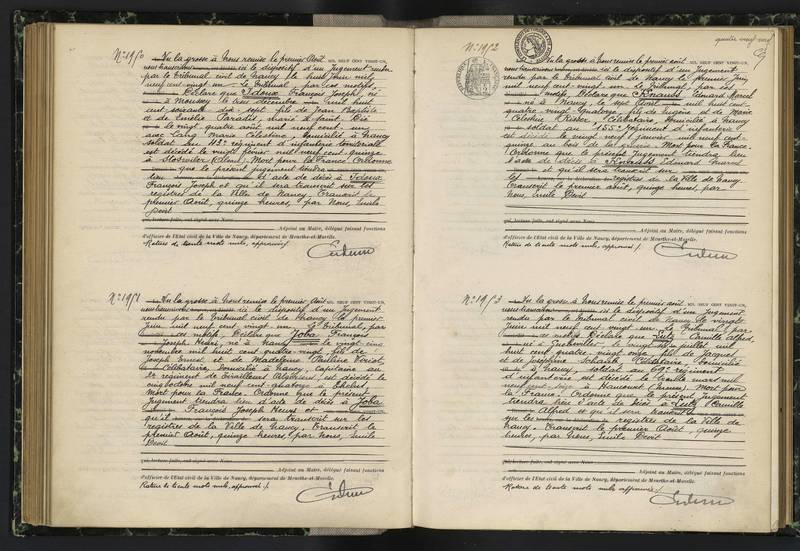 N° 1950
Vu la grosse à Nous remise le premier Août MIL NEUF CENT VINGT-UN,
ici le dispositif d'un Jugement rendu
par le Tribunal civil de Nancy le huit Juin mil
neuf cent vingt un. Le Tribunal, par ces motifs
Déclare que François Joseph, né
à Moussey le treize décembre mil huit
cent soixante sept, fils de Jean Baptiste
et de Emélie Paradis, marié à Saint Dié
le vingt quatre août mil neuf cent un
avec Lang Marie Célestine, domicilié à Nancy
soldat au 43e régiment d'infanterie territoriale
est décédé le vingt février mil neuf cent quinze
à Mort pour la France. Ordonne
que le présent jugement tiendra
lieu d'acte de décès à
François Joseph et qu'il sera transcrit sur les
registres de la Ville de Nancy. Transcrit le
premier Août, quinze heures, par Nous, Emile
Devit
qui, lecture faite, ont signé avec Nous
Adjoint au Maire, délégué faisant fonctions
d'officier de l'Etat civil de la Ville de Nancy, département de Meurthe-et-Moselle.
Rature de trente mots nuls, approuvé /.
N° 1951
Vu la grosse à Nous remise le premier Août MIL NEUF CENT VINGT-UN,
ici le dispositif d'un Jugement
rendu par le Tribunal civil de Nancy le premier
Juin mil neuf cent vingt un. Le Tribunal, par
ces motifs Déclare que Joba François
Joseph Henri, né à Nancy le vingt cinq
novembre mil huit cent quatre-vingt fils de
Joseph Ernest et de Madeleine Pauline
Célibataire, domicilié à Nancy, capitaine au
2e régiment de Tirailleurs Algériens, est décédé le
cinq octobre mil neuf cent quatorze à
Mort pour la France. Ordonne que le présent
jugement tiendra lieu d'acte de décès à Joba
François Joseph Henri et
qu'il sera transcrit sur les
registres de la Ville de Nancy. Transcrit le
premier Août, quinze heures, par Nous, Emile
Devit
qui, lecture faite, ont signé avec Nous
Adjoint au Maire, délégué faisant fonctions
d'officier de l'Etat civil de la Ville de Nancy, département de Meurthe-et-Moselle.
Rature de trente mots nuls, approuvé /.
quatre vingt neuf
N° 1952
Vu la grosse à Nous remise le premier août MIL NEUF CENT VINGT-UN,
ici le dispositif d'un Jugement
rendu par le Tribunal civil de Nancy le premier Juin
mil neuf cent vingt un. Le Tribunal, par ces
motifs Déclare que Edouard Marcel
né à Nancy, le sept Avril mil huit cent
quatre-vingt quatorze fils de Eugène et de Marie
Célestine Célibataire, domicilié à Nancy
soldat au 155e Régiment d'infanterie
est décédé le vingt janvier mil neuf cent
quinze au bois de la Mort pour la France.
Ordonne que le présent jugement tiendra lieu
d'acte de décès à Edouard Marcel
et qu'il sera transcrit sur
les registres de la Ville de Nancy
Transcrit le premier août, quinze heures, par
Nous, Emile Devit
qui, lecture faite, ont signé avec Nous
Adjoint au Maire, délégué faisant fonctions
d'officier de l'Etat civil de la Ville de Nancy, département de Meurthe-et-Moselle.
Rature de trente mots nuls, approuvé /.
N° 1953
Vu la grosse à Nous remise le premier août MIL NEUF CENT VINGT-UN,
ici le dispositif d'un Jugement
rendu par le Tribunal civil de Nancy le
Juin mil neuf cent vingt un. Le Tribunal par
ces motifs Déclare que Camille Alfred,
né à le juillet mil
huit cent quatre-vingt onze, fils de Jacques
et de Joséphine Célibataire, domicilié
à Nancy, soldat au 69e régiment
d'infanterie est décédé le mars mil
neuf cent à Mort pour
la France. Ordonne que le présent jugement
tiendra lieu d'acte de décès à Camille
Alfred et qu'il sera transcrit
sur les registres de la Ville de
Nancy. Transcrit le premier Août, quinze
heures, par Nous, Emile Devit
qui, lecture faite, ont signé avec Nous
Adjoint au Maire, délégué faisant fonctions
d'officier de l'Etat civil de la Ville de Nancy, département de Meurthe-et-Moselle.
Rature de trente mots nuls approuvé /.